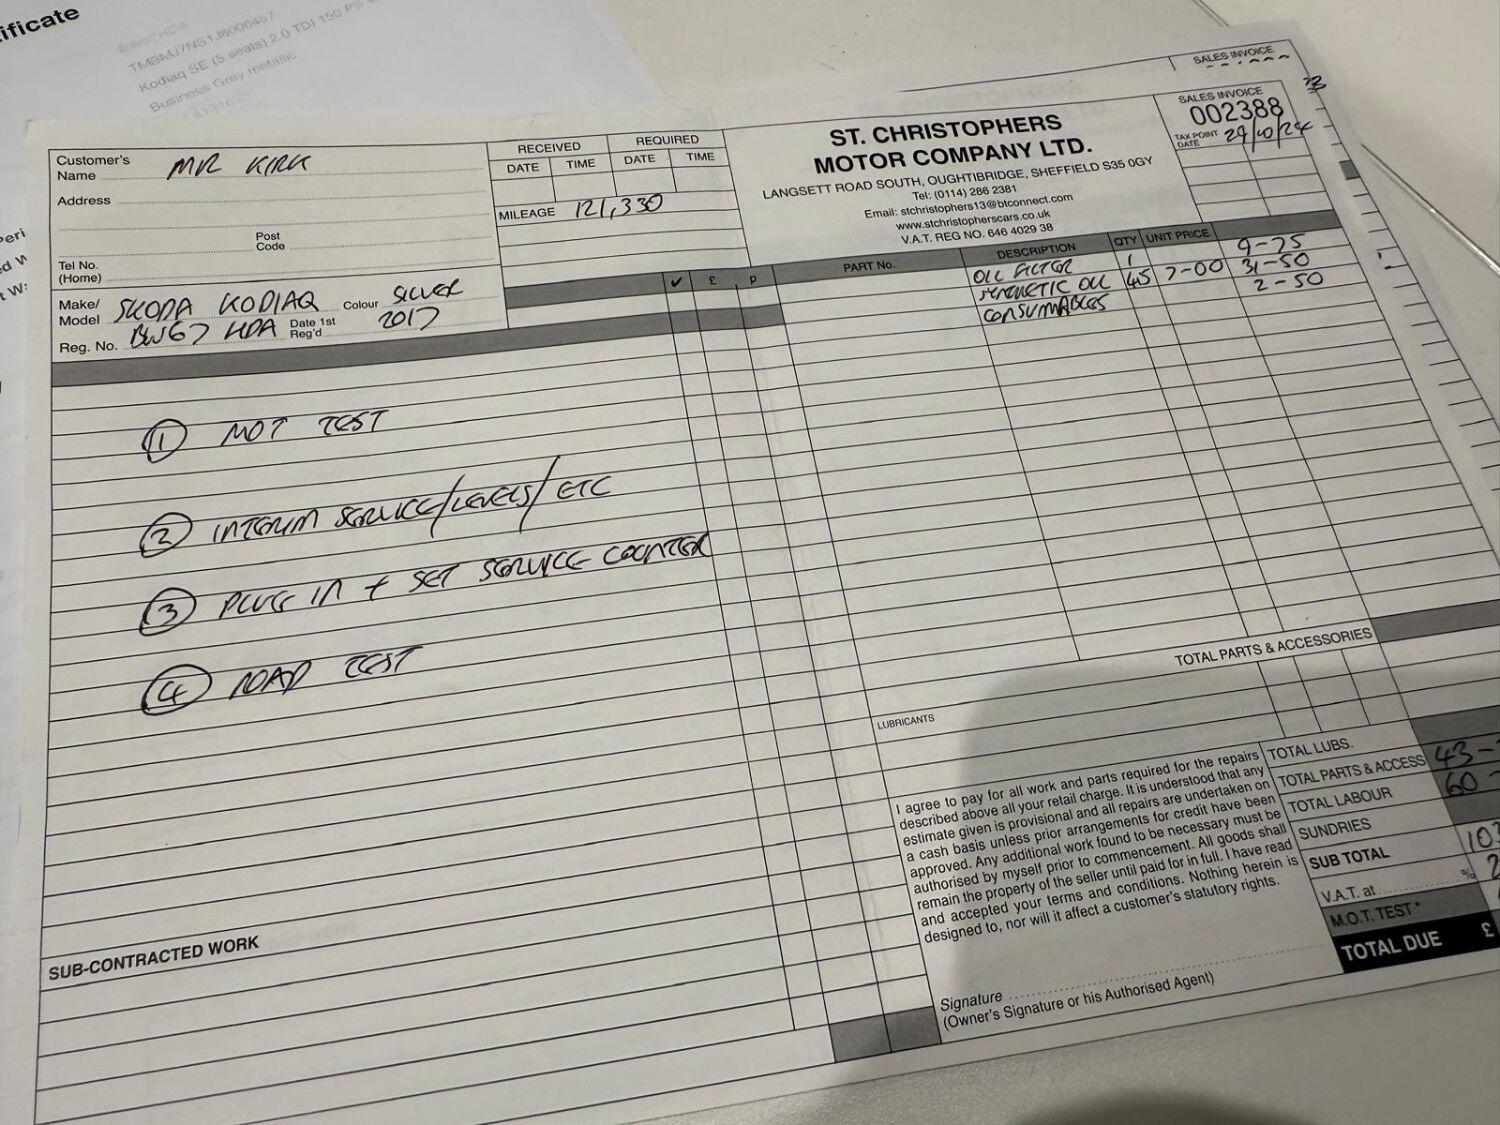 ificate
TMBMJ7NS1J8000457
Kodiaq SE (5 seats) 2.0 TDI 150 PS
Business Grey metallic
SALES INVOICE
Customer's Name MR KIRK
Address
Post Code
Tel No. (Home)
Make/ Model SKODA KODIAQ Colour SILVER
Reg. No. BW67 HDA Date 1st Reg'd 2017
RECEIVED REQUIRED
DATE TIME DATE TIME
MILEAGE 121,330
ST. CHRISTOPHERS
MOTOR COMPANY LTD.
LANGSETT ROAD SOUTH, OUGHTIBRIDGE, SHEFFIELD S35 0GY
Tel: (0114) 286 2381
Email: stchristophers13@btconnect.com
www.stchristopherscars.co.uk
V.A.T. REG NO. 646 4029 38
SALES INVOICE
002388
TAX POINT DATE 29/10/24
✓ £ p
PART No. DESCRIPTION QTY UNIT PRICE
OIL FILTER 1 9-75
SYNTHETIC OIL 45 7-00 31-50
CONSUMABLES 2-50
① MOT TEST
② INTERIM SERVICE/LEVELS/ETC
③ PLUG IN + SET SERVICE COUNTER
④ ROAD TEST
SUB-CONTRACTED WORK
TOTAL PARTS & ACCESSORIES
LUBRICANTS
I agree to pay for all work and parts required for the repairs
described above all your retail charge. It is understood that any
estimate given is provisional and all repairs are undertaken on
a cash basis unless prior arrangements for credit have been
approved. Any additional work found to be necessary must be
authorised by myself prior to commencement. All goods shall
remain the property of the seller until paid for in full. I have read
and accepted your terms and conditions. Nothing herein is
designed to, nor will it affect a customer's statutory rights.
Signature
(Owner's Signature or his Authorised Agent)
TOTAL LUBS.
TOTAL PARTS & ACCESS 43-
TOTAL LABOUR 60-
SUNDRIES
SUB TOTAL 103
V.A.T. at % 2
M.O.T. TEST*
TOTAL DUE £